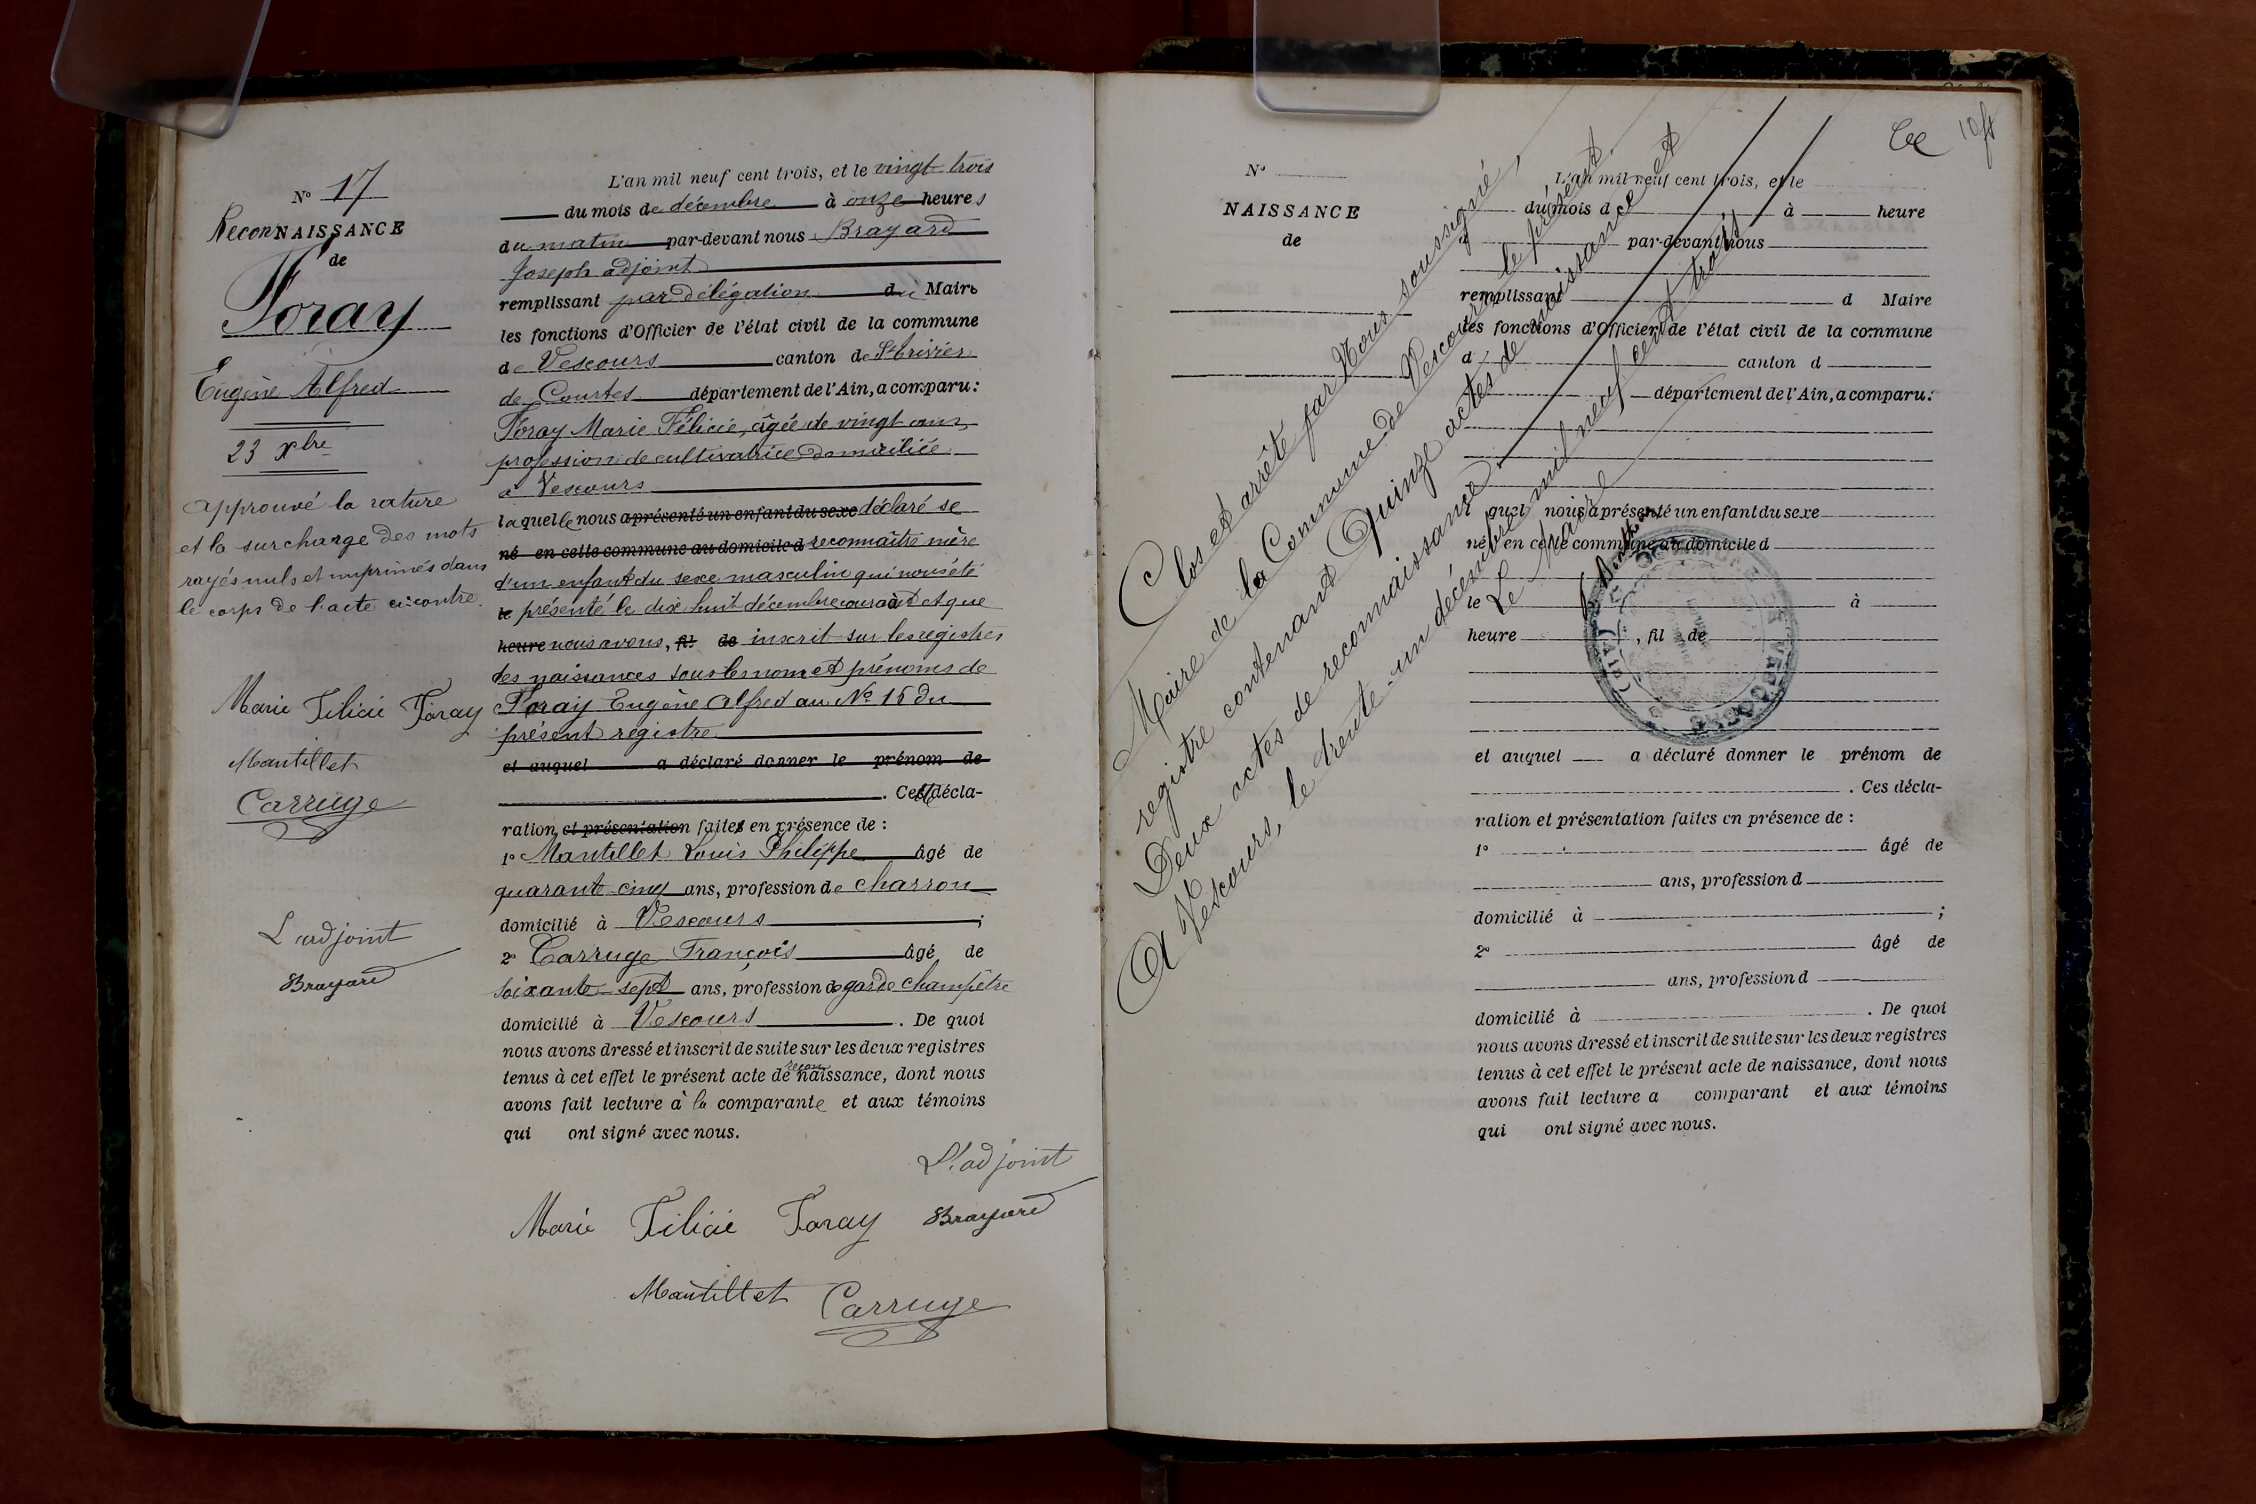 N° 17
ReconNAISSANCE
de
Foray
Eugène Alfred
23 Xbre
approuvé la rature
et la surcharge des mots
rayés nuls et imprimés dans
le corps de l'acte ci-contre.
Marie Félicie Foray
Mantillet
Carruge
L'adjoint
Brayard
L'an mil neuf cent trois, et le vingt-trois
du mois de décembre à onze heures
du matin par-devant nous Brayard
Joseph adjoint
remplissant par délégation du Maire
les fonctions d'Officier de l'état civil de la commune
de Vescours canton de St Trivier
de Courtes département de l'Ain, a comparu:
Foray Marie Félicie, âgée de vingt ans,
profession de cultivatrice domiciliée
à Vescours
laquelle nous a présenté un enfant du sexe déclaré se
né en cette commune au domicile d reconnaître mère
d'un enfant du sexe masculin qui nous été
le présenté le dix huit décembre courant à et que
heure nous avons, fil de inscrit sur les registres
des naissances sous les nom et prénoms de
Foray Eugène Alfred au N° 15 du
présent registre
et auquel a déclaré donner le prénom de
. Cette décla-
ration et présentation faites en présence de :
1° Mantillet Louis Philippe âgé de
quarante-cinq ans, profession de charron
domicilié à Vescours ;
2° Carruge François âgé de
soixante-sept ans, profession de garde champêtre
domicilié à Vescours . De quoi
nous avons dressé et inscrit de suite sur les deux registres
tenus à cet effet le présent acte de reconnaissance, dont nous
avons fait lecture à la comparante et aux témoins
qui ont signé avec nous.
L'adjoint
Marie Félicie Foray Brayard
Mantillet Carruge
10
N°
NAISSANCE
de
L'an mil neuf cent trois, et le
du mois d à heure
par-devant nous
remplissant d Maire
les fonctions d'Officier de l'état civil de la commune
d canton d
département de l'Ain, a comparu:
quel nous a présenté un enfant du sexe
né en cette commune au domicile d
le à
heure , fil de
et auquel a déclaré donner le prénom de
. Ces décla-
ration et présentation faites en présence de :
1° âgé de
ans, profession d
domicilié à ;
2° âgé de
ans, profession d
domicilié à . De quoi
nous avons dressé et inscrit de suite sur les deux registres
tenus à cet effet le présent acte de naissance, dont nous
avons fait lecture a comparant et aux témoins
qui ont signé avec nous.
Clos et arrêté par Nous soussigné,
Maire de la Commune de Vescours le présent
registre contenant Quinze actes de naissance et
Deux actes de reconnaissance.
A Vescours, le trente-un décembre mil neuf cent trois
Le Maire